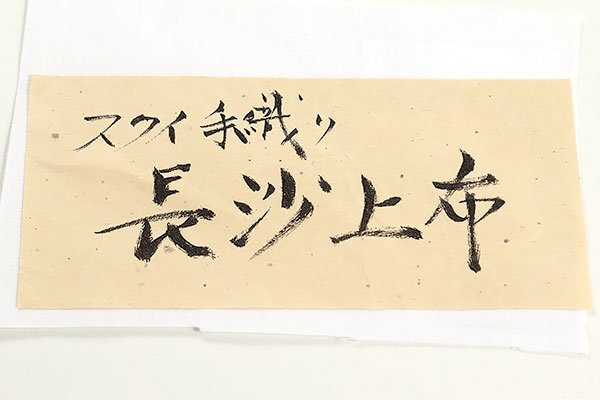 スクイ手織り
長沙上布